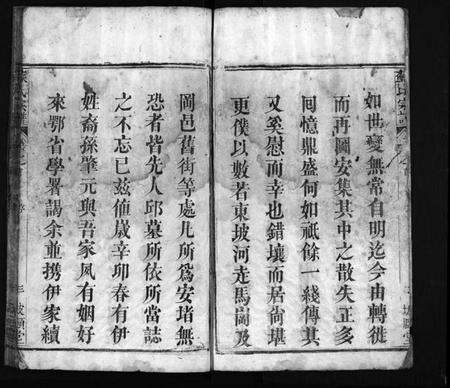 如世變無常自明迄今由轉徙
而再圖安集其中之散失正多
囘憶鼎盛何如祇餘一綫傳其
又奚慰而幸也錯壤而居尙堪
更僕以數若東坡河走馬崗及
岡邑舊街等處凡所爲安堵無
恐者皆先人邱墓所依所當誌
之不忘已兹值歲辛卯春有伊
姓裔孫肇元與吾家夙有姻好
來鄂省學署謁余並携伊家續